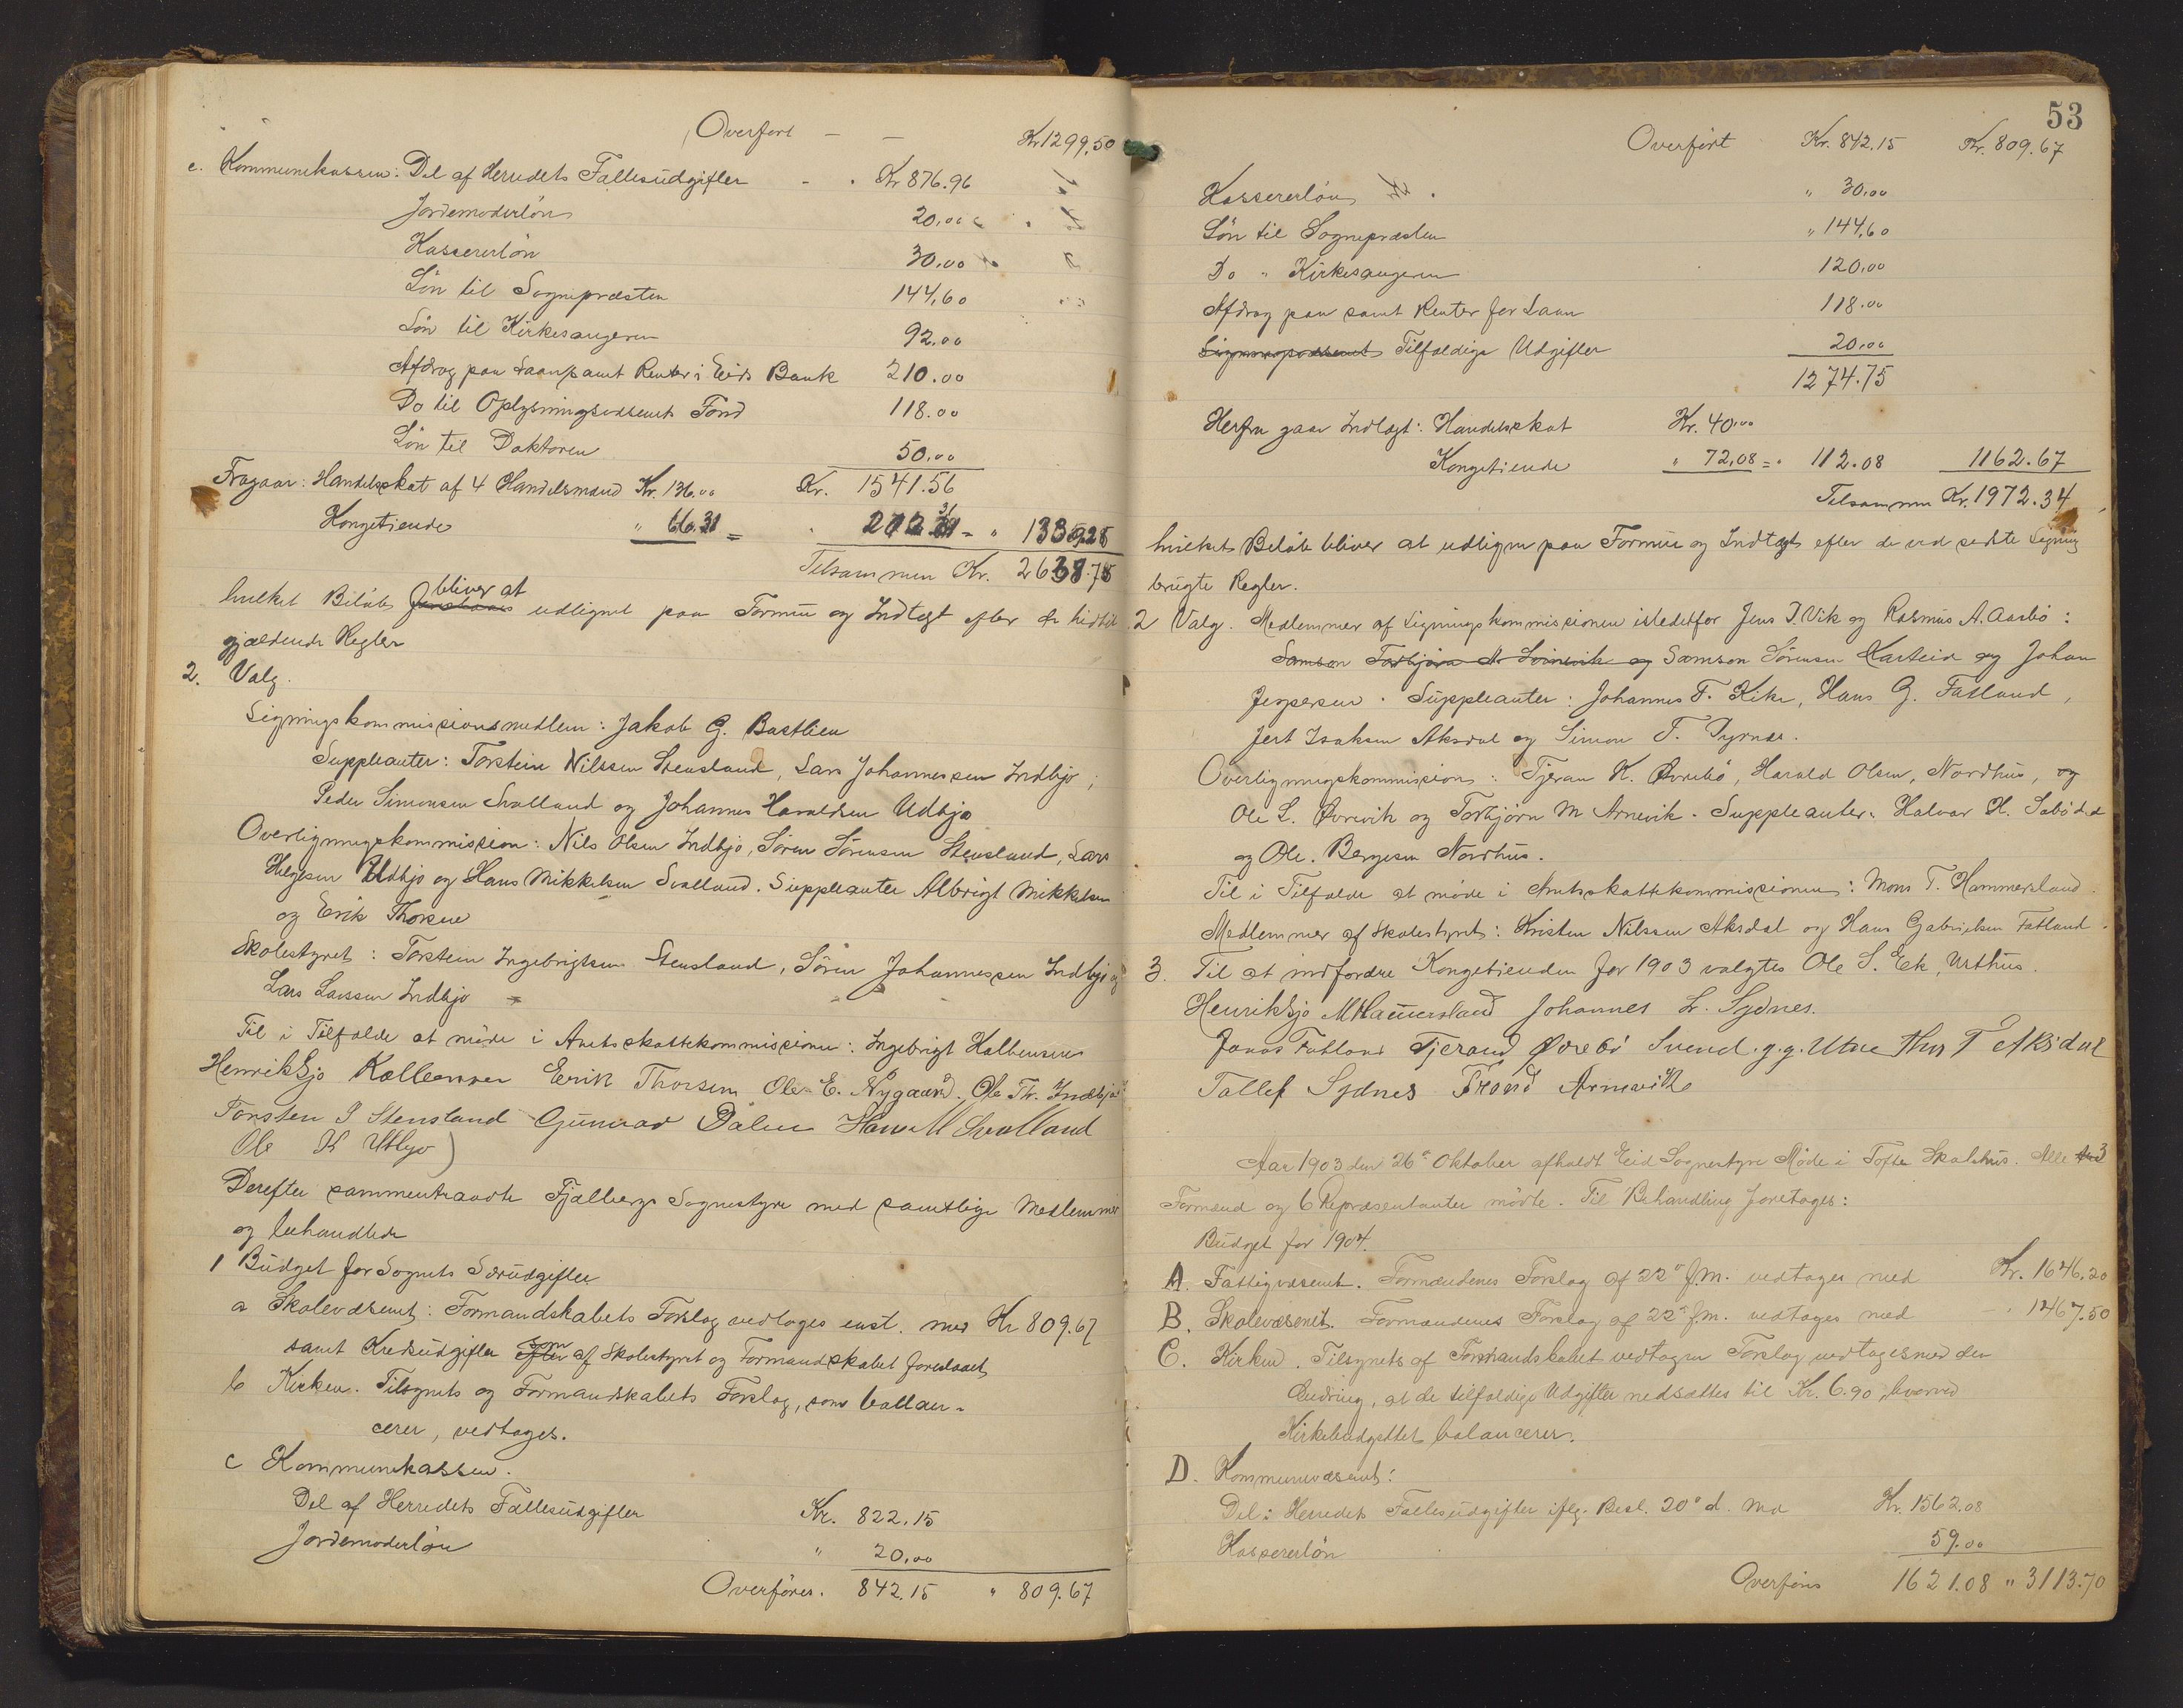 Overført - - Kr 1299.50
c. Kommunekassen: Del af Herredets Fællesudgifter - . Kr 876.96
Jordemoderløn 20,00
Kassererløn 30,00
Løn til Sognepræsten 144,60
Løn til Kirkesangeren 92.00
Afdrag paa Laan samt Renter i Eids Bank 210.00
Do til Oplysningsvæsenets Fond 118.00
Løn til Doktoren 50.00
Fragaar: Handelsskat af 4 Handelsmænd Kr. 136.00 Kr. 1541.56
Kongetiende " 66.31 =
Tilsammen Kr.
hvilket Beløb bliver at udlignet paa Formue og Indtægt efter de hidtil
gjældende Regler
2. Valg.
Ligningskommissionsmedlem: Jakob G. Bastlien
Suppleanter: Torstein Nilssen Stensland, Lars Johannessen Indbjo,
Peder Simonsen Svolland og Johannes Haraldsen Udbjo
Overligningskommission: Nils Olsen Indbjo, Søren Sørensen Stensland, Lars
Helgesen Udbjo og Hans Mikkelsen Svolland. Suppleanter Albrigt Mikkelsen
og Erik Thorsen
Skolestyret: Torstein Ingebrigtsen Stensland, Søren Johannessen Indbjo og
Lars Larssen Indbjo
Til i Tilfælde at møde i Amtsskattekommissionen: Ingebrigt Halvensen
Henrik Sjo Erik Thorsen Ole E. Nygaard. Ole Th. Indbjo
Torsten I Stensland Gunnar Dalen Hans M Svolland
Ole H Utbjo
Derefter sammentraadte Fjælbergs Sognestyre med samtlige Medlemmer
og behandlede
1 Budget for Sognets Særudgifter
a Skolevæsenet: Formandskabets Forslag vedtoges enst. med Kr 809.67
samt Kredsudgifter som af Skolestyret og Formandskabet foreslaaet
b Kirken. Tilsynets og Formandskabets Forslag, som ballan-
cerer, vedtages.
c Kommunekassen.
Del af Herredets Fællesudgifter Kr. 822.15
Jordemoderløn " 20,00
Overføres. 842.15 " 809.67
53
Overført Kr. 842.15 Kr. 809.67
Kassererløn " 30,00
Løn til Sognepræsten " 144,60
Do " Kirkesangeren 120,00
Afdrag paa samt Renter for Laan 118.00
Tilfældige Udgifter 20,00
1274.75
Herfra gaar Indtægt: Handelsskat Kr. 40.00
Kongetiende " 72,08 = " 112.08 1162.67
Tilsammen Kr. 1972.34
hvilket Beløb bliver at udligne paa Formue og Indtægt efter de ved sidste Ligning
brugte Regler.
2 Valg. Medlemmer af Ligningskommissionen istedetfor Jens J. Vik og Rasmus A. Aasbø:
Samson Torbjørn M. Svinevik og Samson Sørensen Karteid og Johan
Jespersen. Suppleanter: Johannes T. Kike, Hans G. Fatland,
Jert Isaksen Aksdal og Simon T.
Overligningskommission: Tjeran K. Øvrebø, Harald Olsen, Nordhus, og
Ole L. Øvrevik og Torbjørn M Arnevik. Suppleanter: Halvar H. Sæbø død
og Ole. Bergesen Nordhus.
Til i Tilfælde at møde i Amtsskattekommissionen: Mons T. Hammersland.
Medlemmer af Skolestyret: Kristen Nilssen Aksdal og Hans Gabrielsen Fatland.
3. Til at indfordre Kongetienden for 1903 valgtes Ole S. Eek, Urthus.
Henrik Sjo M Hammersland Johannes L. Sydnes.
Jonas Fatland Tjerand Øvrebø Svend. g. g. Utne T Aksdal
Tallef Sydnes Trond Arnevik
Aar 1903 den 26de Oktober afholdt Eid Sognestyre Møde i Tofte Skolehus. Alle 3
Formænd og 6 Repræsentanter mødte. Til Behandling foretoges:
Budget for 1904.
A. Fattigvæsenet. Formændenes Forslag af 22de f.m. vedtages med Kr. 1646.20
B. Skolevæsenet. Formændenes Forslag af 22de f.m. vedtages med - " 1467.50
C. Kirken. Tilsynets af Formandskabet vedtagne Forslag vedtages med den
Ændring, at de tilfældige Udgifter nedsættes til Kr. 6.90, hvorved
Kirkebudgettet balancerer.
D. Kommunevæsenet:
Del i Herredets Fællesudgifter iflg. Besl. 20de d. Md Kr. 1562.08
Kassererløn 59.00
Overføres 1621.08 " 3113.70